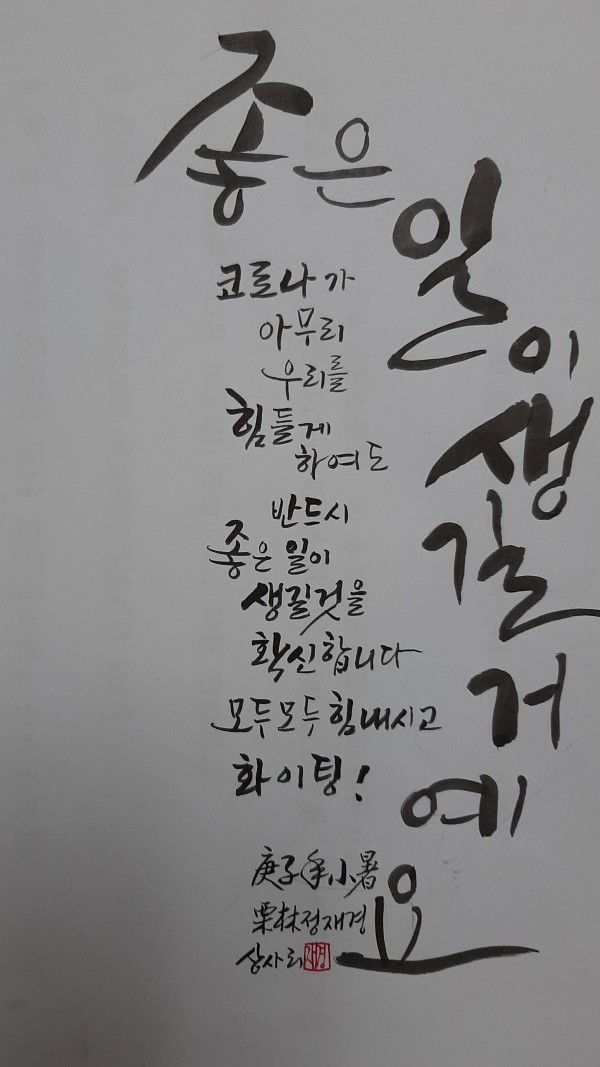 좋은
일이
생길
거
예
요
코로나가
아무리
우리를
힘들게
하여도
반드시
좋은 일이
생길것을
확신합니다
모두모두 힘내시고
화이팅!
庚子年小暑
栗林정재경
상사리
재경